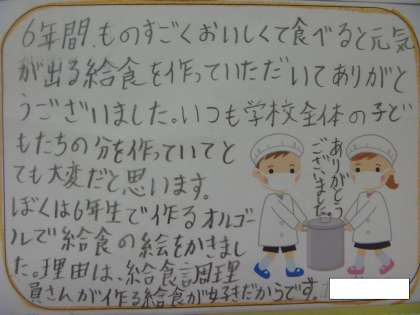 6年間、ものすごくおいしくて食べると元気
が出る給食を作っていただいてありがと
うございました。いつも学校全体の子ど
もたちの分を作っていてと
ても大変だと思います。
ぼくは6年生で作るオルゴー
ルで給食の絵をかきまし
た。理由は、給食調理
員さんが作る給食が好きだからです。
ありがとう
ございました。